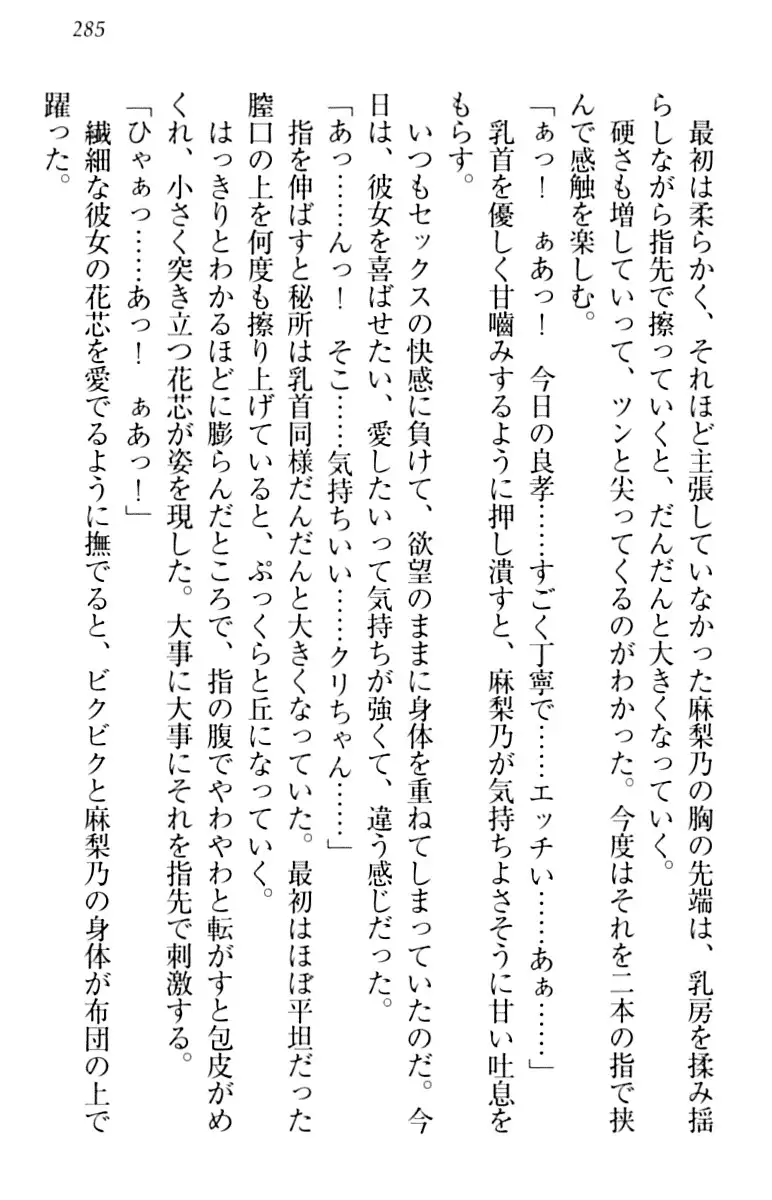 285
最初は柔らかく、それほど主張していなかった麻梨乃の胸の先端は、乳房を揉み揺
らしながら指先で擦っていくと、だんだんと大きくなっていく。
硬さも増していって、ツンと尖ってくるのがわかった。今度はそれを二本の指で挟
んで感触を楽しむ。
「ぁっ！　ぁあっ！　今日の良孝……すごく丁寧で……エッチい……あぁ……」
乳首を優しく甘嚙みするように押し潰すと、麻梨乃が気持ちよさそうに甘い吐息を
もらす。
いつもセックスの快感に負けて、欲望のままに身体を重ねてしまっていたのだ。今
日は、彼女を喜ばせたい、愛したいって気持ちが強くて、違う感じだった。
「あっ……んっ！　そこ……気持ちいい……クリちゃん……」
指を伸ばすと秘所は乳首同様だんだんと大きくなっていた。最初はほぼ平坦だった
膣口の上を何度も擦り上げていると、ぷっくらと丘になっていく。
はっきりとわかるほどに膨らんだところで、指の腹でやわやわと転がすと包皮がめ
くれ、小さく突き立つ花芯が姿を現した。大事に大事にそれを指先で刺激する。
「ひゃぁっ……あっ！　ぁあっ！」
繊細な彼女の花芯を愛でるように撫でると、ビクビクと麻梨乃の身体が布団の上で
躍った。